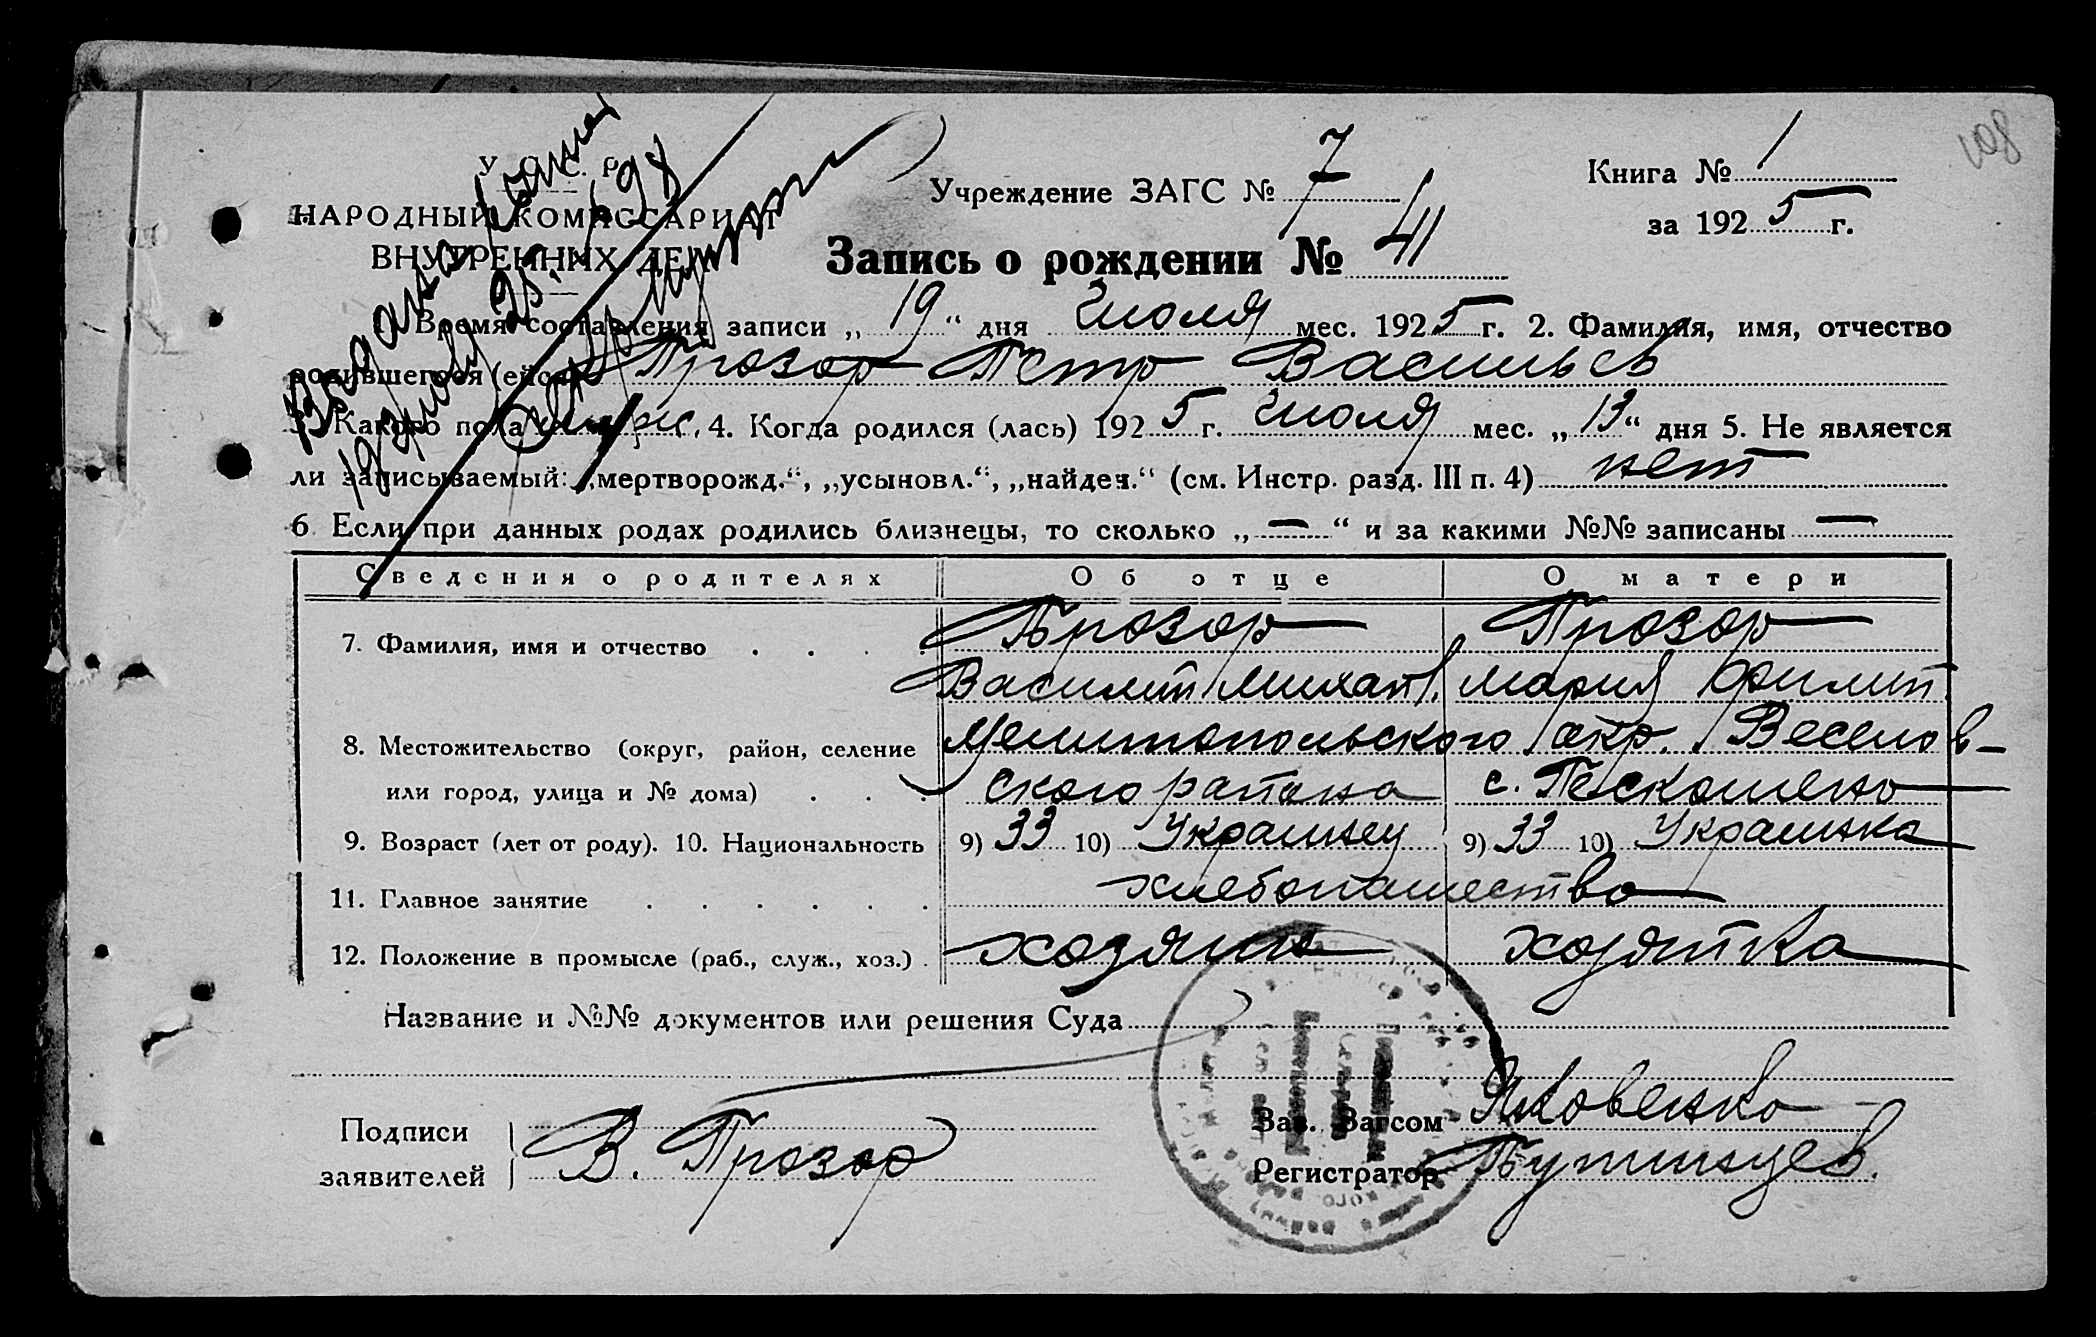 108
У. С. С. Р.
НАРОДНЫЙ КОМИССАРИАТ
ВНУТРЕННИХ ДЕЛ
Учреждение ЗАГС № 7
Книга № 1
за 1925 г.
Запись о рождении № 41
Время составления записи „19“ дня Июля мес. 1925 г. 2. Фамилия, имя, отчество
родившегося (ейся) Прозор Петр Васильев
3. Какого пола муж. 4. Когда родился (лась) 1925 г. Июля мес. „13“ дня 5. Не является
ли записываемый: „мертворожд.“, „усыновл.“, „найден.“ (см. Инстр. разд. III п. 4) нет
6 Если при данных родах родились близнецы, то сколько „—“ и за какими №№ записаны —
Сведения о родителях Об отце О матери
7. Фамилия, имя и отчество . . . . Прозор Прозор
Василий Михайл. Мария Филип.
8. Местожительство (округ, район, селение Мелитопольского окр. Веселов-
или город, улица и № дома) . . . ского района с. Пескошено
9. Возраст (лет от роду). 10. Национальность 9) 33 10) Украинец 9) 33 10) Украинка
11. Главное занятие . . . . . . хлебопашество
12. Положение в промысле (раб., служ., хоз.) . хозяин хозяйка
Название и №№ документов или решения Суда
Подписи
заявителей
В. Прозор
Зав. Загсом Яковенко
Регистратор Путинцев.